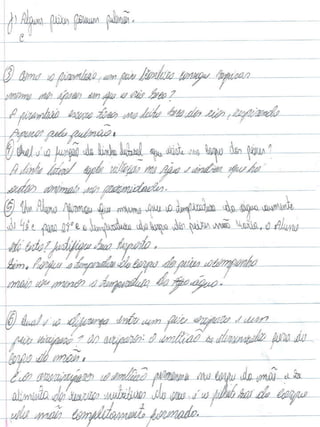 f) Alguns peixes possuem pulmão.
C
③ Como a pirambóia, um peixe brasileiro consegue respirar
mesmo nas épocas em que o rio seca?
A pirambóia escava tocas no leito seco dos rios, respirando
apenas pelo pulmão.
④ Qual é a função da linha lateral que existe no corpo dos peixes?
A linha lateral capta vibrações na água e indica que há
outros animais nas proximidades.
⑤ Um aluno afirmou que mesmo que a temperatura da água aumente
de 18°C para 28°C a temperatura do corpo dos peixes não varia. O aluno
está certo? Justifique sua resposta.
a temperatura do corpo do peixes acompanha
mais ou menos a temperatura da água.
⑥ Qual é a diferença entre um peixe ovíparo e um
peixe ? os ovíparos: o embrião se desenvolve fora do
corpo da mãe.
E os o embrião permanece no corpo da mãe e se
alimenta das reservas nutritivas do ovo e o filhote sai do corpo
da mãe completamente formado.